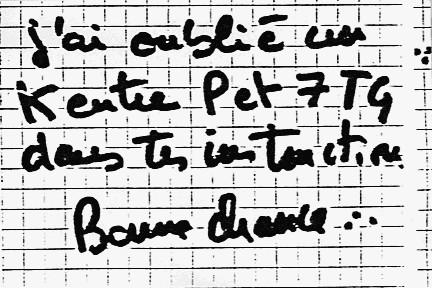 j'ai oublié un
K entre P et 7TG
dans tes instructions
Bonne chance ∴